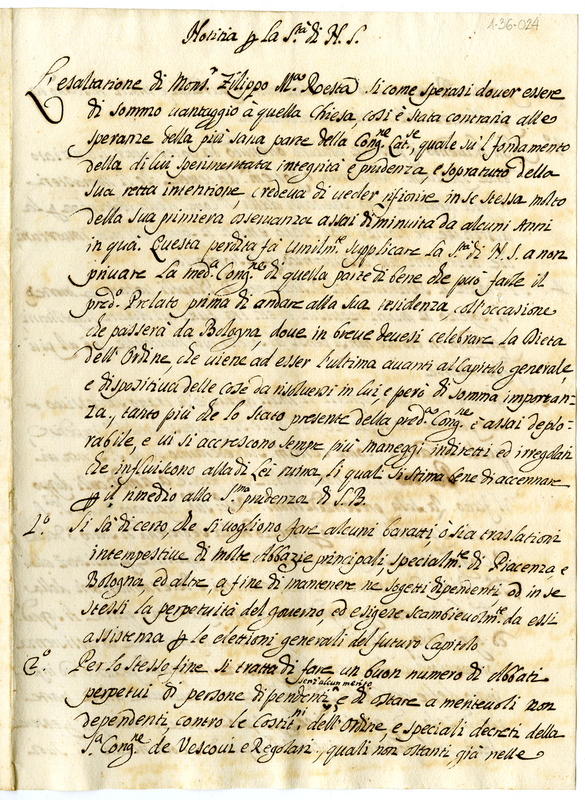 1-36-024
Notizia p la S.tà di N. S.
L'esaltatione di Mons.r Filippo M.a Resta si come sperasi dover essere
di sommo vantaggio à quella Chiesa, così è stata contraria alle
speranze della più sana parte della Cong.ne Cat.se, quale sù'l fondamento
della di lui sperimentata integrità e prudenza, e sopratutto della
sua retta intentione, credeva di veder rifiorire in se stessa molto
della sua primiera osservanza assai diminuita da alcuni Anni
in quà. Questa perdita fà umilm.te supplicare la S.tà di N. S. a non
privare la med.a Cong.ne di quella parte di bene che può farle il
pred.o Prelato prima di andare alla sua residenza coll'occasione
che passerà da Bologna, dove in breve devesi celebrare la Dieta
dell'Ordine, che viene ad esser l'ultima avanti al Capitolo generale,
e dispositiva delle cose da risolversi in lui, e però di somma importan-
za, tanto più che lo stato presente della pred.a Cong.ne è assai deplo-
rabile, e vi si accrescono sempre più maneggi indiretti ed irregolari
che influiscono alla di Lei ruina, li quali si stima bene di accennare
p il rimedio alla S.ma prudenza di S. B.
1.o Si sà di certo, che si vogliono fare alcuni baratti, ò sia traslationi
intempestive di molte Abbazie principali, specialm.te di Piacenza, e
Bologna ed altre, a fine di mantenere ne sogetti dipendenti ed in se
stessi la perpetuità del governo, ed esigere scambievolm.te da essi
assistenza p le elettioni generali del futuro Capitolo
2.o Per lo stesso fine si tratta di fare un buon numero di Abbati
perpetui di persone dipendenti senz'alcun merito, e di ostare a meritevoli non
dependenti, contro le Costit.ni dell'Ordine, e speciali decreti della
S.a Cong.ne de Vescovi e Regolari, quali non ostanti, già nelle